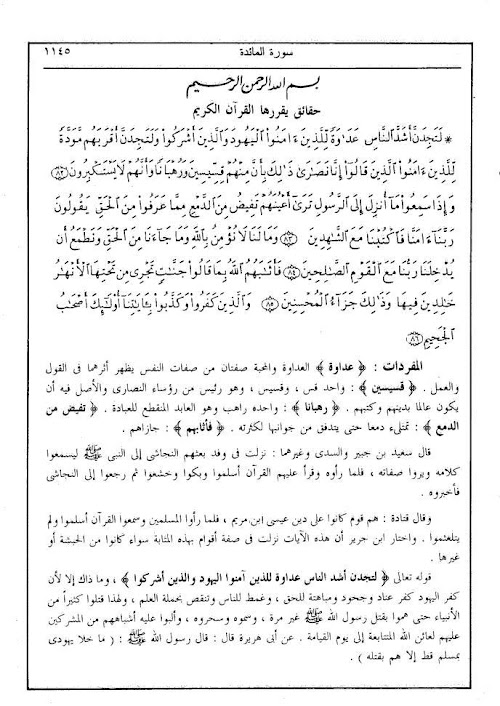 سورة المائدة ١١٤٥
بسم الله الرحمن الرحيم
حقائق يقررها القرآن الكريم
* لَتَجِدَنَّ أَشَدَّ النَّاسِ عَدَاوَةً لِّلَّذِينَ ءَامَنُوا الْيَهُودَ وَالَّذِينَ أَشْرَكُوا وَلَتَجِدَنَّ أَقْرَبَهُم مَّوَدَّةً
لِّلَّذِينَ ءَامَنُوا الَّذِينَ قَالُوا إِنَّا نَصَارَىٰ ذَٰلِكَ بِأَنَّ مِنْهُمْ قِسِّيسِينَ وَرُهْبَانًا وَأَنَّهُمْ لَا يَسْتَكْبِرُونَ ﴿٨٢﴾
وَإِذَا سَمِعُوا مَا أُنزِلَ إِلَى الرَّسُولِ تَرَىٰ أَعْيُنَهُمْ تَفِيضُ مِنَ الدَّمْعِ مِمَّا عَرَفُوا مِنَ الْحَقِّ يَقُولُونَ
رَبَّنَا ءَامَنَّا فَاكْتُبْنَا مَعَ الشَّاهِدِينَ ﴿٨٣﴾ وَمَا لَنَا لَا نُؤْمِنُ بِاللَّهِ وَمَا جَاءَنَا مِنَ الْحَقِّ وَنَطْمَعُ أَن
يُدْخِلَنَا رَبُّنَا مَعَ الْقَوْمِ الصَّالِحِينَ ﴿٨٤﴾ فَأَثَابَهُمُ اللَّهُ بِمَا قَالُوا جَنَّاتٍ تَجْرِي مِن تَحْتِهَا الْأَنْهَارُ
خَالِدِينَ فِيهَا وَذَٰلِكَ جَزَاءُ الْمُحْسِنِينَ ﴿٨٥﴾ وَالَّذِينَ كَفَرُوا وَكَذَّبُوا بِـَٔايَاتِنَا أُولَٰئِكَ أَصْحَابُ
الْجَحِيمِ ﴿٨٦﴾
المفردات : ﴿ عداوة ﴾ العداوة والمحبة صفتان من صفات النفس يظهر أثرهما فى القول
والعمل . ﴿ قسيسين ﴾ : واحد قس ، وقسيس ، وهو رئيس من رؤساء النصارى والأصل فيه أن
يكون عالما بدينهم وكتبهم . ﴿ رهبانا ﴾ : واحده راهب وهو العابد المنقطع للعبادة . ﴿ تفيض من
الدمع ﴾ : تمتلىء دمعا حتى يتدفق من جوانبها لكثرته . ﴿ فأثابهم ﴾ : جازاهم .
قال سعيد بن جبير والسدى وغيرهما : نزلت فى وفد بعثهم النجاشى إلى النبى ﷺ ليسمعوا
كلامه ويروا صفاته ، فلما رأوه وقرأ عليهم القرآن أسلموا وبكوا وخشعوا ثم رجعوا إلى النجاشى
فأخبروه .
وقال قتادة : هم قوم كانوا على دين عيسى ابن مريم ، فلما رأوا المسلمين وسمعوا القرآن أسلموا ولم
يتلعثموا . واختار ابن جرير أن هذه الآيات نزلت فى صفة أقوام بهذه المثابة سواء كانوا من الحبشة أو
غيرها .
قوله تعالى ﴿ لتجدن أشد الناس عداوة للذين آمنوا اليهود والذين أشركوا ﴾ ، وما ذاك إلا لأن
كفر اليهود كفر عناد وجحود ومباهتة للحق ، وغمط للناس وتنقص بحملة العلم ، ولهذا قتلوا كثيراً من
الأنبياء حتى هموا بقتل رسول الله ﷺ غير مرة ، وسموه وسحروه ، وألبوا عليه أشباههم من المشركين
عليهم لعائن الله المتتابعة إلى يوم القيامة . عن أبى هريرة قال : قال رسول الله ﷺ : ( ما خلا يهودى
بمسلم قط إلا هم بقتله ) .